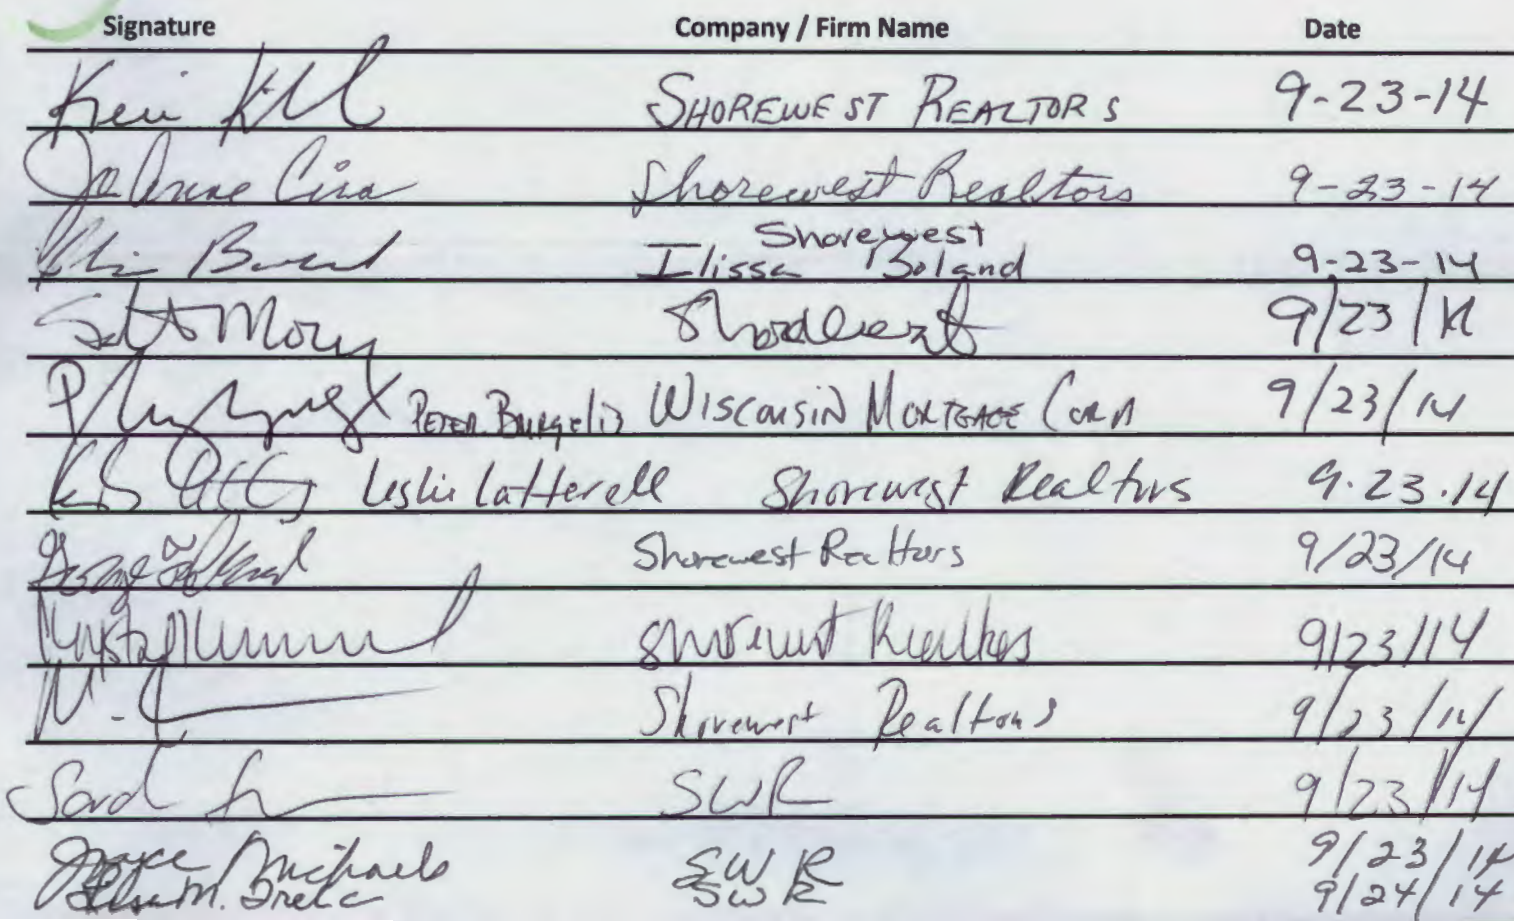 Signature Company / Firm Name Date
SHOREWEST REALTORS 9-23-14
JoAnne Cira Shorewest Realtors 9-23-14
Shorewest
Ilissa Boland 9-23-14
Shorewest 9/23/14
PETER BURGELIS WISCONSIN MORTGAGE CORP 9/23/14
Leslie Latterell Shorewest Realtors 9.23.14
George Shorewest Realtors 9/23/14
Shorewest Realtors 9/23/14
Shorewest Realtors 9/23/14
Sarah SWR 9/23/14
Joyce Michaels SWR 9/23/14
SWR 9/24/14